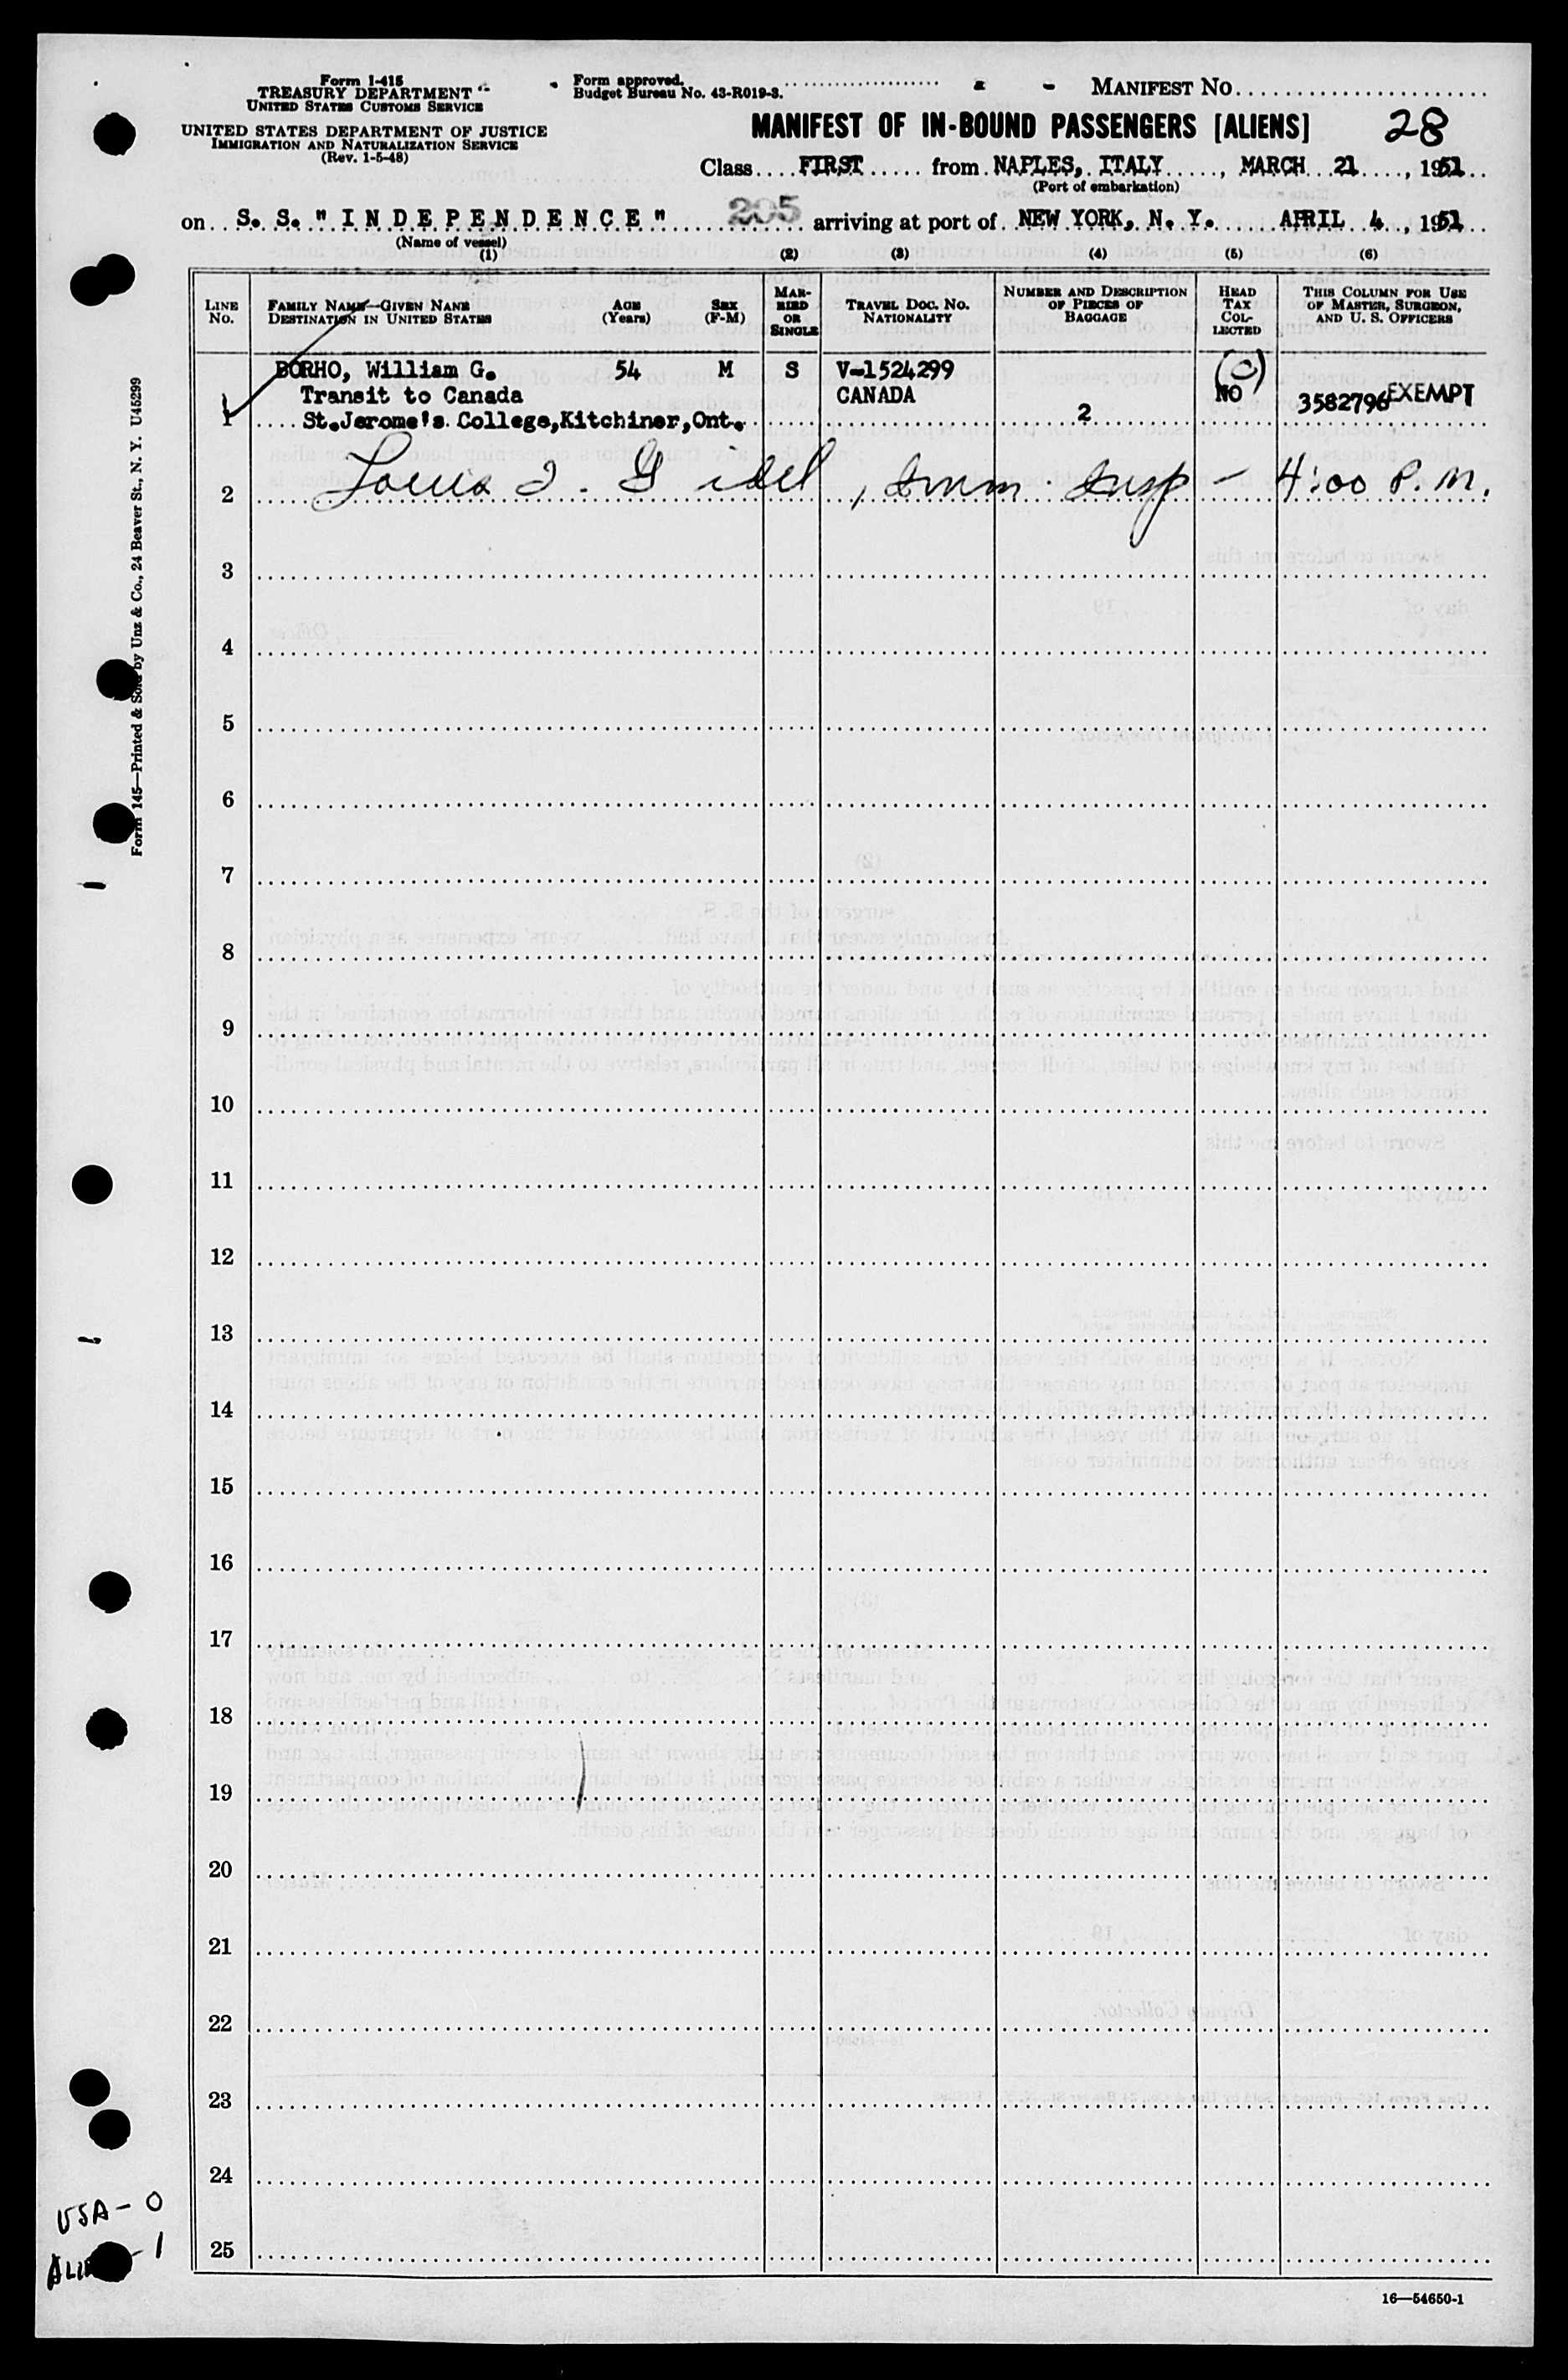 Form I-415
TREASURY DEPARTMENT
UNITED STATES CUSTOMS SERVICE
UNITED STATES DEPARTMENT OF JUSTICE
IMMIGRATION AND NATURALIZATION SERVICE
(Rev. 1-5-48)
Form approved.
Budget Bureau No. 43-R019-3.
MANIFEST NO.
MANIFEST OF IN-BOUND PASSENGERS [ALIENS] 28
Class FIRST from NAPLES, ITALY, MARCH 21, 1951
(Port of embarkation)
on S. S. "INDEPENDENCE" 205 arriving at port of NEW YORK, N. Y. APRIL 4, 1951
(Name of vessel)
(1) (2) (3) (4) (5) (6)
LINE No.
FAMILY NAME—GIVEN NAME
DESTINATION IN UNITED STATES
AGE (Years)
SEX (F-M)
MARRIED OR SINGLE
TRAVEL DOC. NO.
NATIONALITY
NUMBER AND DESCRIPTION OF PIECES OF BAGGAGE
HEAD TAX COLLECTED
THIS COLUMN FOR USE OF MASTER, SURGEON, AND U. S. OFFICERS
1 BORHO, William G. 54 M S V-1524299 (C)
Transit to Canada CANADA NO 3582796 EXEMPT
St.Jerome's College,Kitchiner,Ont. 2
2 Louis J. Gidel, Imm. Insp - 4:00 P.M.
3
4
5
6
7
8
9
10
11
12
13
14
15
16
17
18
19
20
21
22
23
24
25
Form 145—Printed & Sold by Unz & Co., 24 Beaver St., N. Y. U45299
USA - 0
- 1
16—54650-1